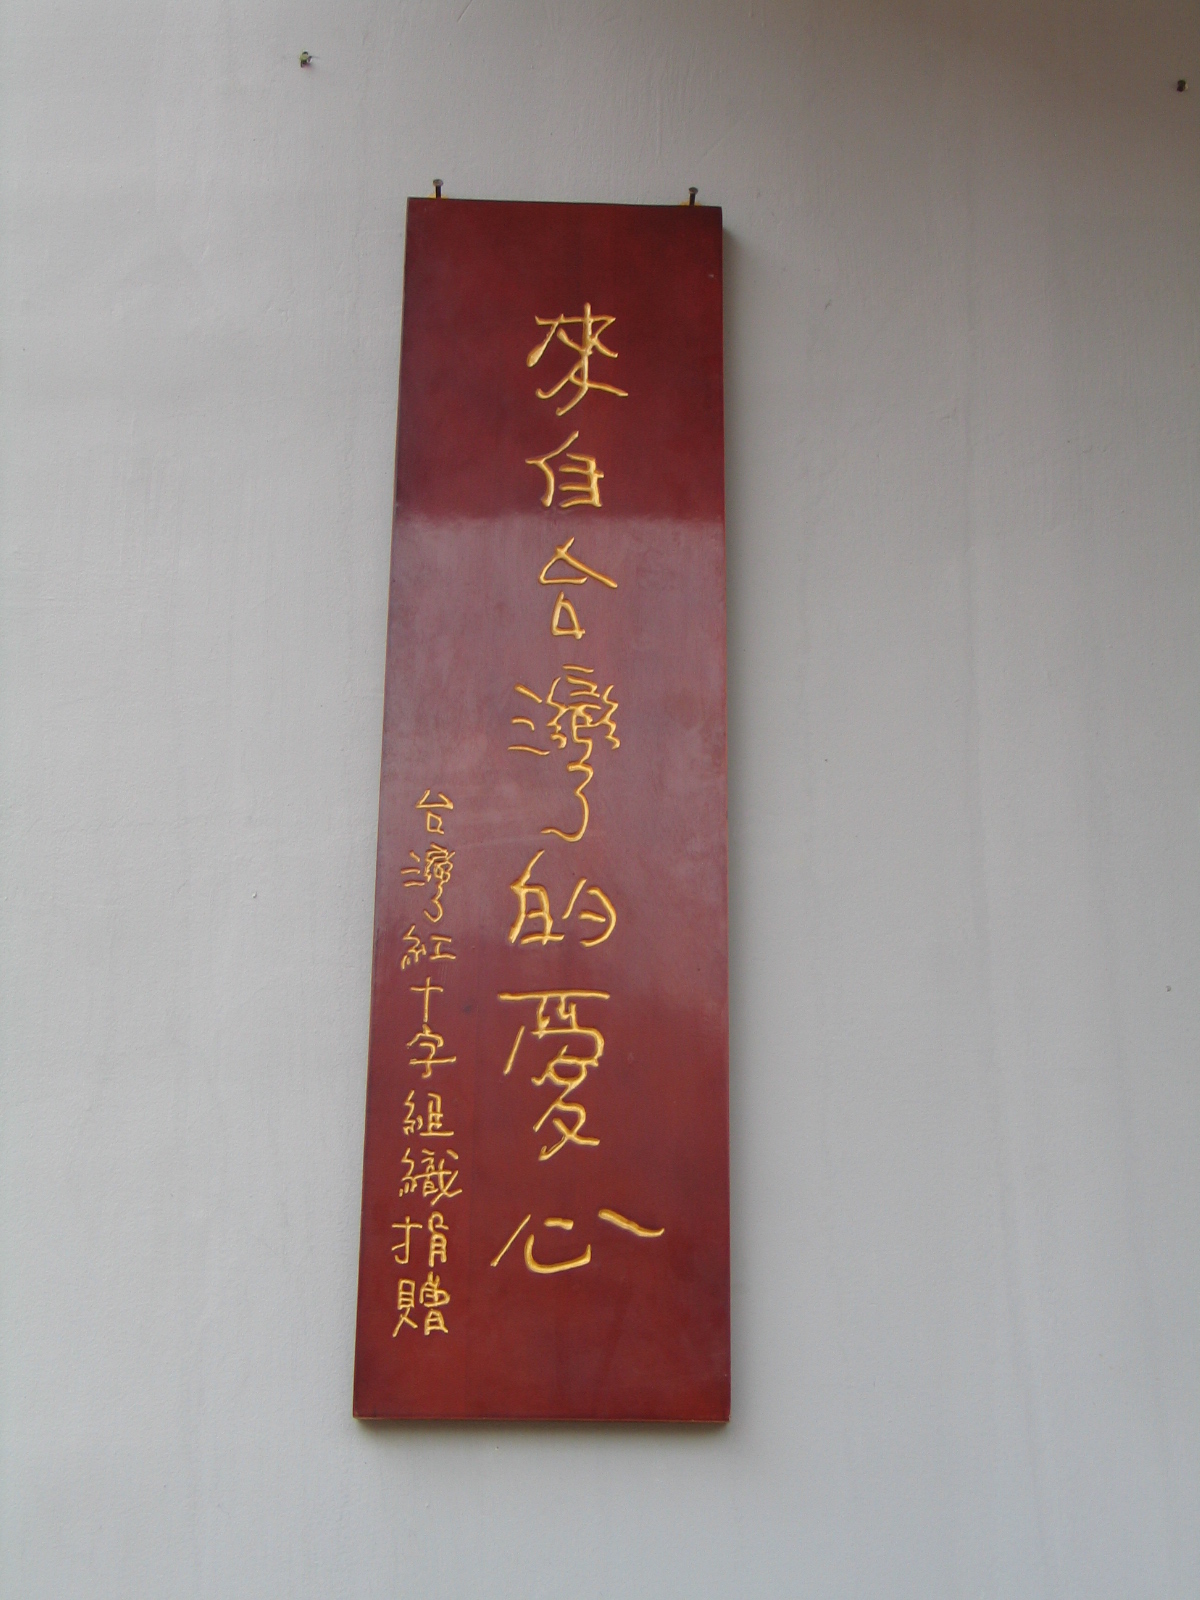 來自台灣的愛心
台灣紅十字組織捐贈